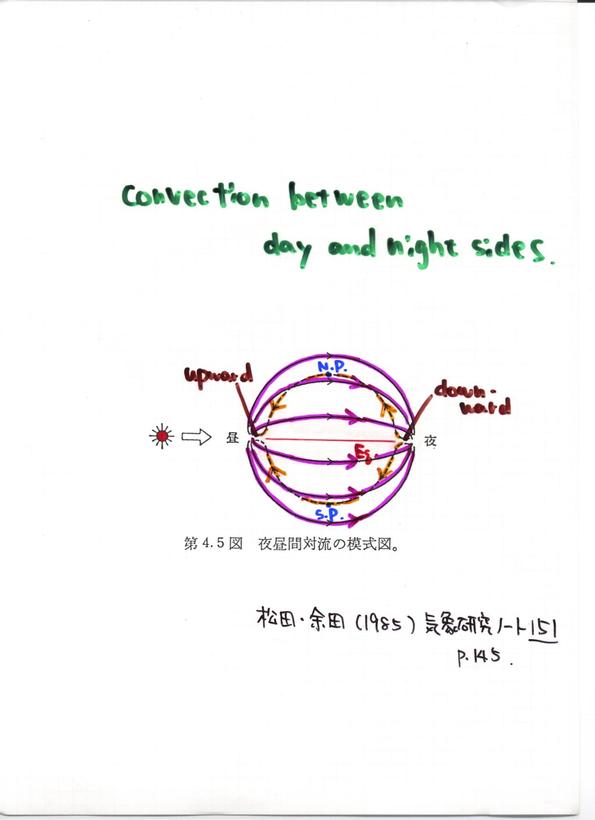 convection between
day and night sides.
upward
N.P.
down-
ward
昼
Eq.
夜
S.P.
第4.5図 夜昼間対流の模式図。
松田・余田(1985)気象研究ノート151
p.145.